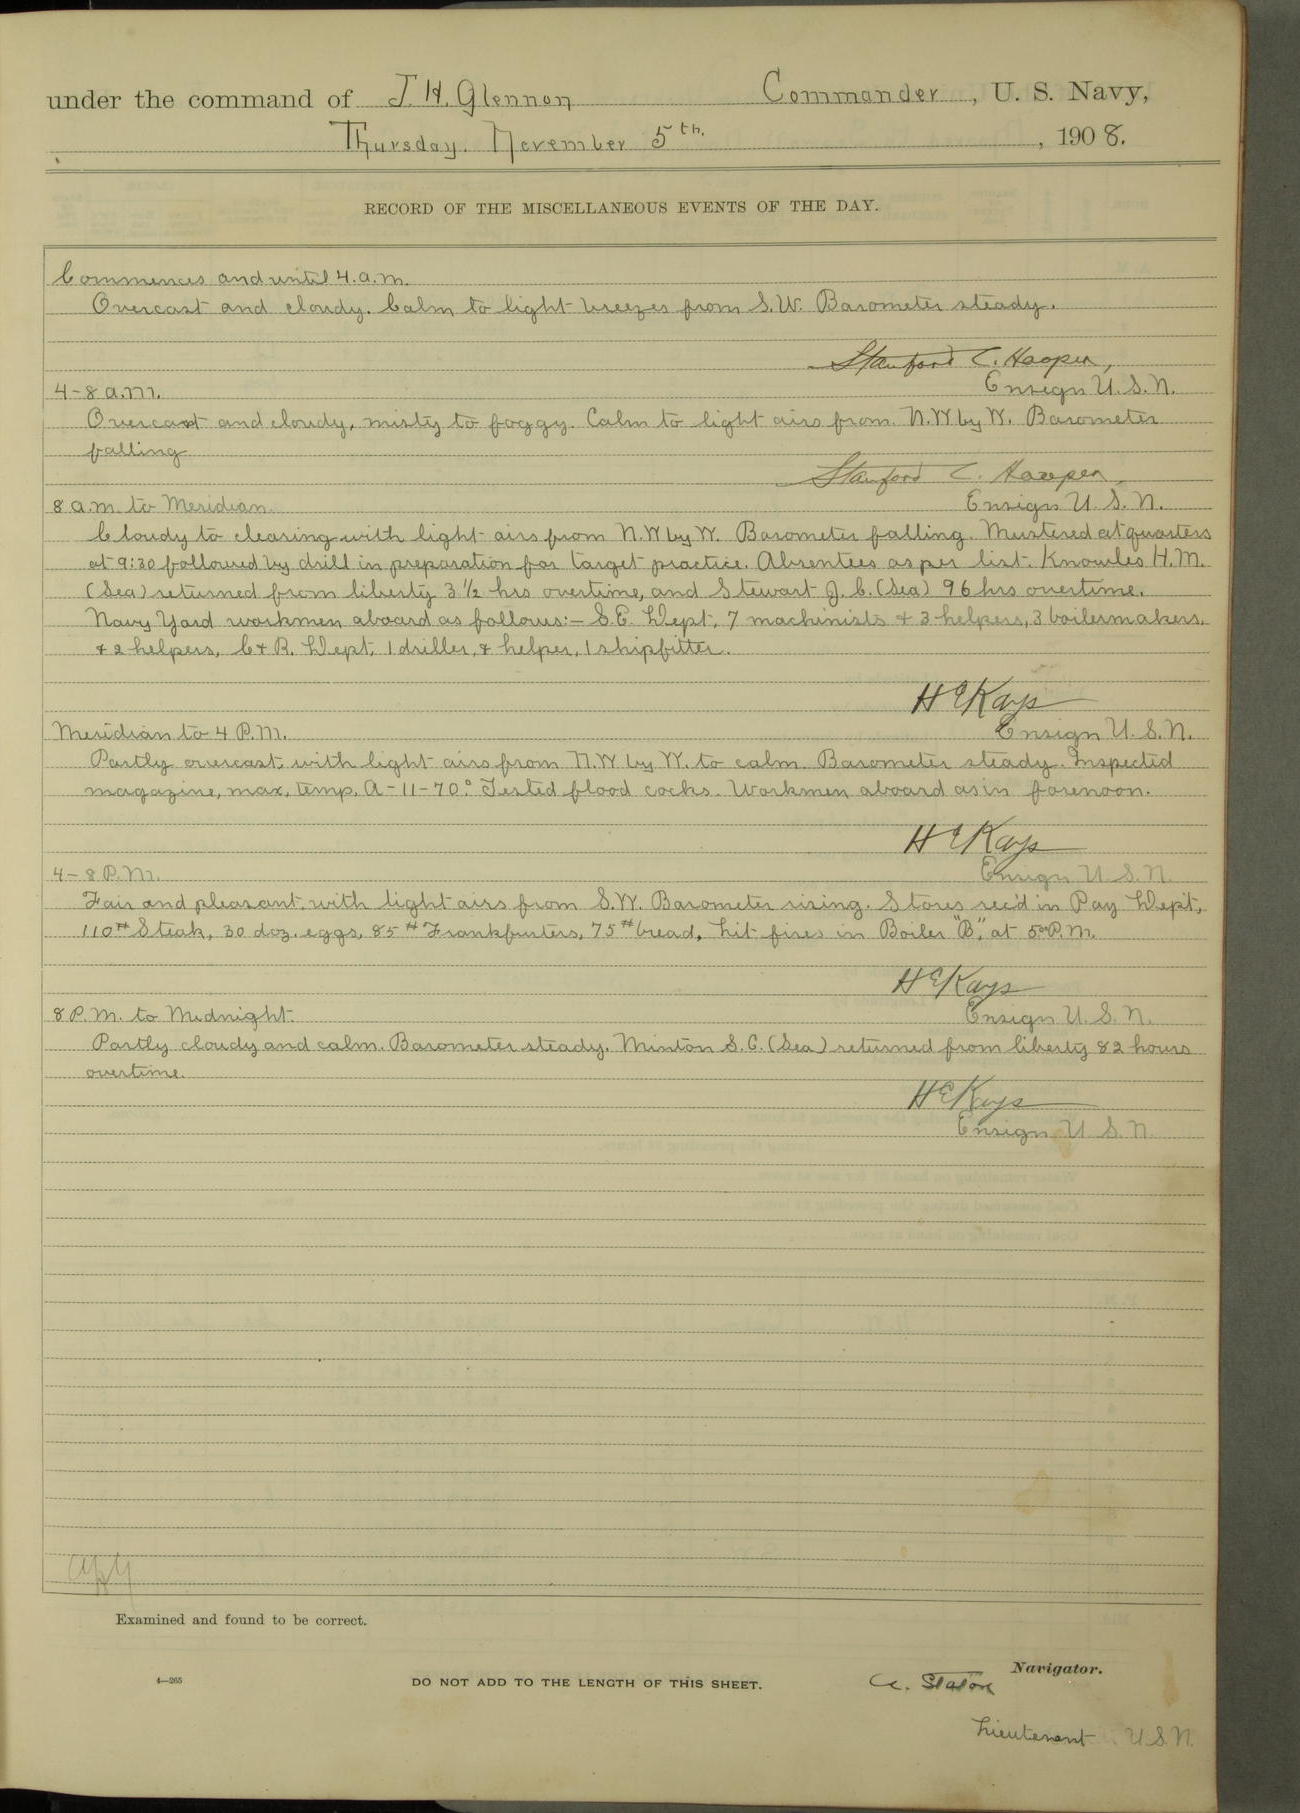 under the command of J. H. Glennon Commander, U. S. Navy,
Thursday. November 5th., 1908.
RECORD OF THE MISCELLANEOUS EVENTS OF THE DAY.
Commences and until 4.a.m.
Overcast and cloudy. Calm to light breezes from S.W. Barometer steady.
Stanford C. Hooper,
Ensign U.S.N.
4-8 a.m.
Overcast and cloudy, misty to foggy. Calm to light airs from N.W by W. Barometer
falling
Stanford C. Hooper,
Ensign U.S.N.
8 a.m. to Meridian.
Cloudy to clearing with light airs from N.W by W. Barometer falling. Mustered at quarters
at 9:30 followed by drill in preparation for target practice. Absentees as per list. Knowles H.M.
(Sea) returned from liberty 3 ½ hrs overtime, and Stewart J. C. (Sea) 96 hrs overtime.
Navy Yard workmen aboard as follows:- S.E. Dept. 7 machinists + 3 helpers, 3 boilermakers,
+ 2 helpers, C + R. Dept, 1 driller, + helper, 1 shipfitter.
H E Kays
Ensign U.S.N.
Meridian to 4 P.M.
Partly overcast, with light airs from N.W by W. to calm. Barometer steady. Inspected
magazine, max, temp, A-11-70°. Tested flood cocks. Workmen aboard as in forenoon.
H E Kays
Ensign U.S.N.
4-8 P.M.
Fair and pleasant, with light airs from S.W. Barometer rising. Stores rec'd in Pay Dept,
110# Steak, 30 doz. eggs, 85# Frankfurters, 75# bread, Lit fires in Boiler "B", at 5:00 P.M.
H E Kays
Ensign U.S.N.
8 P.M. to Midnight.
Partly cloudy and calm. Barometer steady. Minton S.C. (Sea) returned from liberty 82 hours
overtime.
H E Kays
Ensign U.S.N.
Examined and found to be correct.
Navigator.
4—265
DO NOT ADD TO THE LENGTH OF THIS SHEET.
A. Staton
Lieutenant U.S.N.